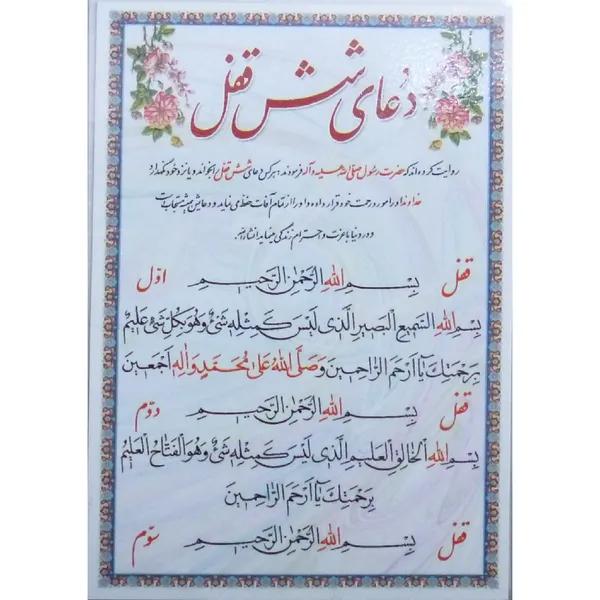 دُعای شش قفل
روایت کرده‌اند که حضرت رسول صلی الله علیه و آله فرمودند: هر کس دعای شش قفل را بخواند و یا نزد خود نگهدارد
خداوند او را مورد رحمت خود قرار داده و او را از تمام آفات حفظ می‌نماید و دعایش همیشه مستجاب است
و در دنیا با عزت و احترام زندگی مینماید انشاءالله.
قفل بِسْمِ اللهِ الرَّحْمٰنِ الرَّحیمِ اوّل
بِسْمِ اللهِ السَّمیعِ الْبَصیرِ الَّذی لَیْسَ کَمِثْلِهِ شَیْءٌ وَهُوَ بِکُلِّ شَیْءٍ عَلیمٌ
بِرَحْمَتِكَ یٰا اَرْحَمَ الرّٰاحِمینَ وَصَلَّی اللهُ عَلیٰ مُحَمَّدٍ وَآلِهِ اَجْمَعینَ
قفل بِسْمِ اللهِ الرَّحْمٰنِ الرَّحیمِ دوّم
بِسْمِ اللهِ الْخٰالِقِ الْعَلیمِ الَّذی لَیْسَ کَمِثْلِهِ شَیْءٌ وَهُوَ الْفَتّٰاحُ الْعَلیمُ
بِرَحْمَتِكَ یٰا اَرْحَمَ الرّٰاحِمینَ
قفل بِسْمِ اللهِ الرَّحْمٰنِ الرَّحیمِ سوّم